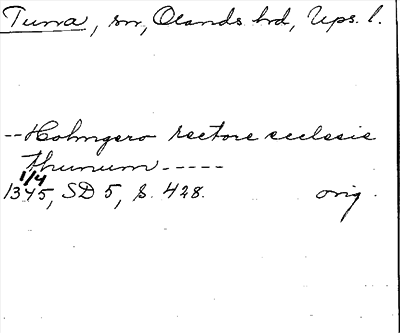 Tuna, sn, Olands hd, Ups. l.
--Holmgero rectore ecclesie
thunum-----
1/4
1345, SD 5, S. 428. orig.